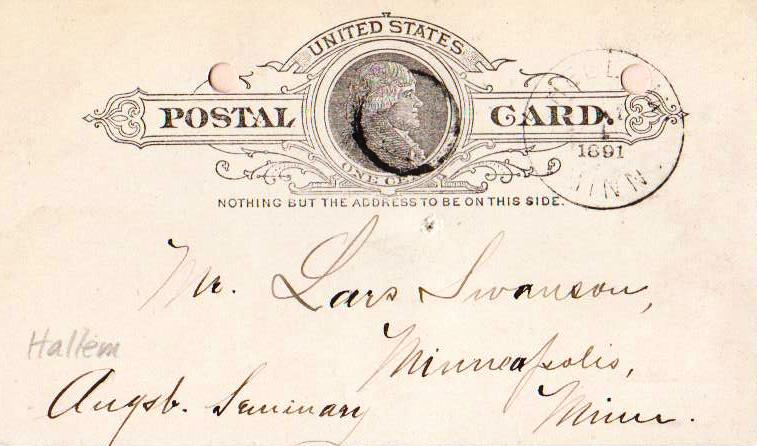 UNITED STATES
POSTAL CARD.
ONE CENT
1891
MINN.
NOTHING BUT THE ADDRESS TO BE ON THIS SIDE.
Mr. Lars Swanson,
Minneapolis,
Hallem
Augsb. Seminary
Minn.